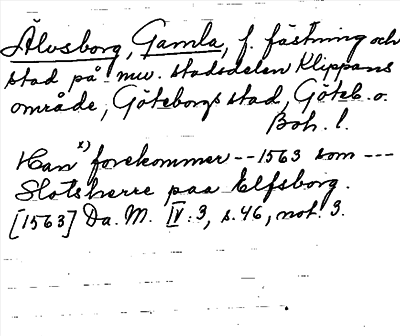 Älvsborg, Gamla, f. fästning och
stad på nuv. stadsdelen Klippans
område, Göteborgs stad, Göteb. o.
Boh. l.
Han x) forekommer -- 1563 som ---
Slotsherre paa Elfsborg.
[1563] Da. M. IV: 3, s. 46, not. 3.